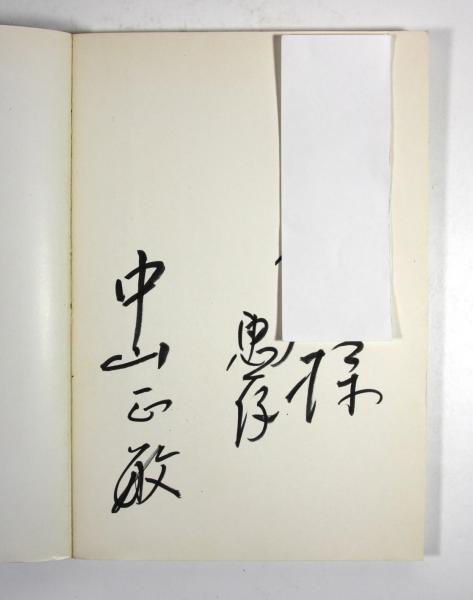 様
恵存
中山正敏